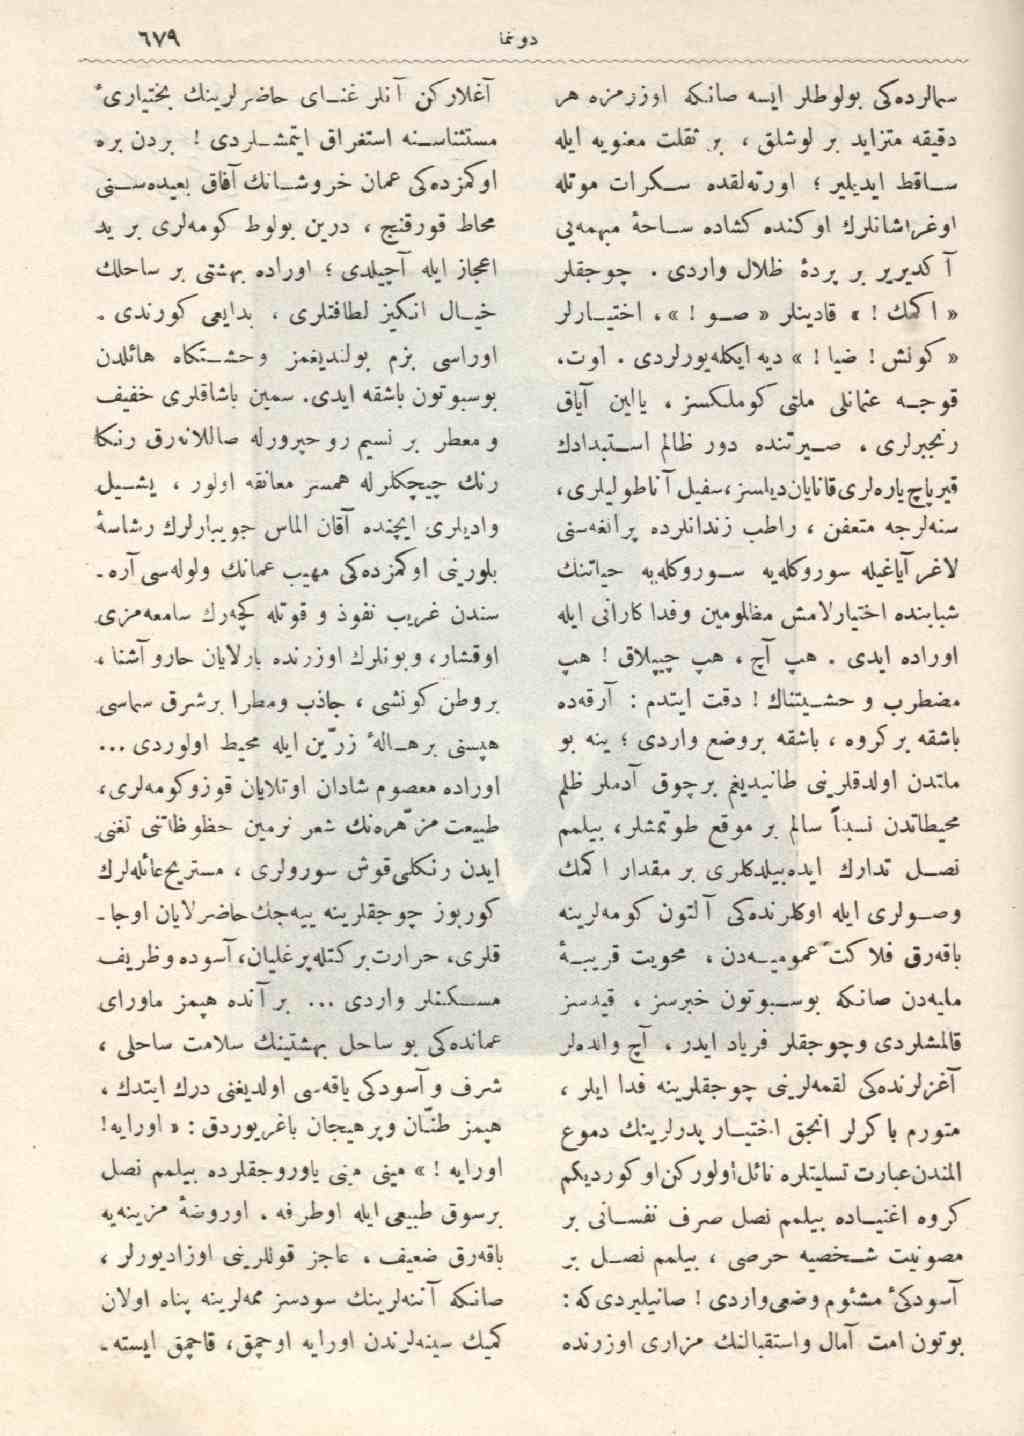 دونما
٦٧٩
سمالرده‌كی بولوطلر ایسه صانكه اوزرمزه هر
دقیقه متزاید بر لوشلق ، بر ثقلت معنویه ایله
ساقط ایدیلیر ؛ اورته‌لقده سكرات موتله
اوغراشانلرك اوكنده كشاده ساحهٔ مبهمه‌یی
آكدیریر بر پردهٔ ظلال واردی . چوجقلر
« اكمك ! » قادینلر « صو ! » ، اختیارلر
« كونش ! ضیا ! » دیه ایكله‌یورلردی . اوت،
قوجه عثمانلی ملتی كوملكسز ، یالین آیاق
رنجبرلری ، صیرتنده دور ظالم استبدادك
قیرپاچ یاره‌لری قانایان دیلسز، سفیل آناطولیلری،
سنه‌لرجه متعفن ، راطب زندانلرده پرانغه‌سنی
لاغر آیاغیله سوروكله‌یه سوروكله‌یه حیاتنك
شبابنده اختیارلامش مظلومین وفداكارانی ایله
اوراده ایدی . هپ آچ ، هپ چیپلاق ! هپ
مضطرب و حشیتناك ! دقت ایتدم : آرقه‌ده
باشقه بر كروه ، باشقه بروضع واردی ؛ ینه بو
ملتدن اولدقلرینی طانیدیغم برچوق آدملر ظلم
محیطاتدن نسبةً سالم بر موقع طوتمشلر، بیلمم
نصل تدارك ایده‌بیلدكلری بر مقدار اكمك
وصولری ایله اوكلرنده‌كی آلتون كومه‌لرینه
باقه‌رق فلاكت عمومیه‌دن ، محویت قریبهٔ
ملیه‌دن صانكه بوسبوتون خبرسز ، قیدسز
قالمشلردی وچوجقلر فریاد ایدر ، آچ والده‌لر
آغزلرنده‌كی لقمه‌لرینی چوجقلرینه فدا ایلر ،
متورم باكرلر انجق اختیار پدرلرینك دموع
المندن عبارت تسلیتلره نائل اولوركن او كوردیكم
كروه اغنیاده بیلمم نصل صرف نفسانی بر
مصونیت شخصیه حرصی ، بیلمم نصل بر
آسودكیٔ مشئوم وضعی واردی ! صانیلیردی كه :
بوتون امت آمال واستقبالنك مزاری اوزرنده
آغلاركن آنلر غنای حاضرلرینك بختیاریٔ
مستثناسنه استغراق ایتمشلردی ! بردن بره
اوكمزده‌كی عمان خروشانك آفاق بعیده‌سنی
محاط قورقنج ، درین بولوط كومه‌لری بر ید
اعجاز ایله آچیلدی ؛ اوراده بهشتی بر ساحلك
خیال انكیز لطافتلری ، بدایعی كورندی .
اوراسی بزم بولندیغمز وحشتكاه هائلدن
بوسبوتون باشقه ایدی. سمین باشاقلری خفیف
و معطر بر نسیم روحپرورله صاللانه‌رق رنكا
رنك چیچكلرله همسر معانقه اولور ، یشیل
وادیلری ایچنده آقان الماس جویبارلرك رشاسهٔ
بلورینی اوكمزده‌كی مهیب عمانك ولوله‌سی آره-
سندن غریب نفوذ و قوتله كچه‌رك سامعه‌مزی
اوقشار، وبونلرك اوزرنده پارلایان حارو آشنا ،
بروطن كونشی ، جاذب ومطرا برشرق سماسی
هپسنی برهالهٔ زرّین ایله محیط اولوردی ...
اوراده معصوم شادان اوتلایان قوزو كومه‌لری،
طبیعت مزهّره‌نك شعر نرمین حظوظاتنی تغنی
ایدن رنكلی قوش سورولری ، مستریح عائله‌لرك
كوربوز چوجقلرینه ییه‌جك حاضرلایان اوجا-
قلری، حرارت بركتله پرغلیان، آسوده وظریف
مسكنلر واردی ... برآنده هپمز ماورای
عمانده‌كی بو ساحل بهشتینك سلامت ساحلی ،
شرف و آسودكی یاقه‌سی اولدیغنی درك ایتدك ،
هپمز طنّان وپرهیجان باغریوردق : « اورایه!
اورایه ! » مینی مینی یاوروجقلرده بیلمم نصل
برسوق طبیعی ایله اوطرفه ، اوروضهٔ مزینه‌یه
باقه‌رق ضعیف ، عاجز قوللرینی اوزادیورلر ،
صانكه آننه‌لرینك سودسز ممه‌لرینه پناه اولان
كمیك سینه‌لرندن اورایه اوچمق، قاچمق ایسته-